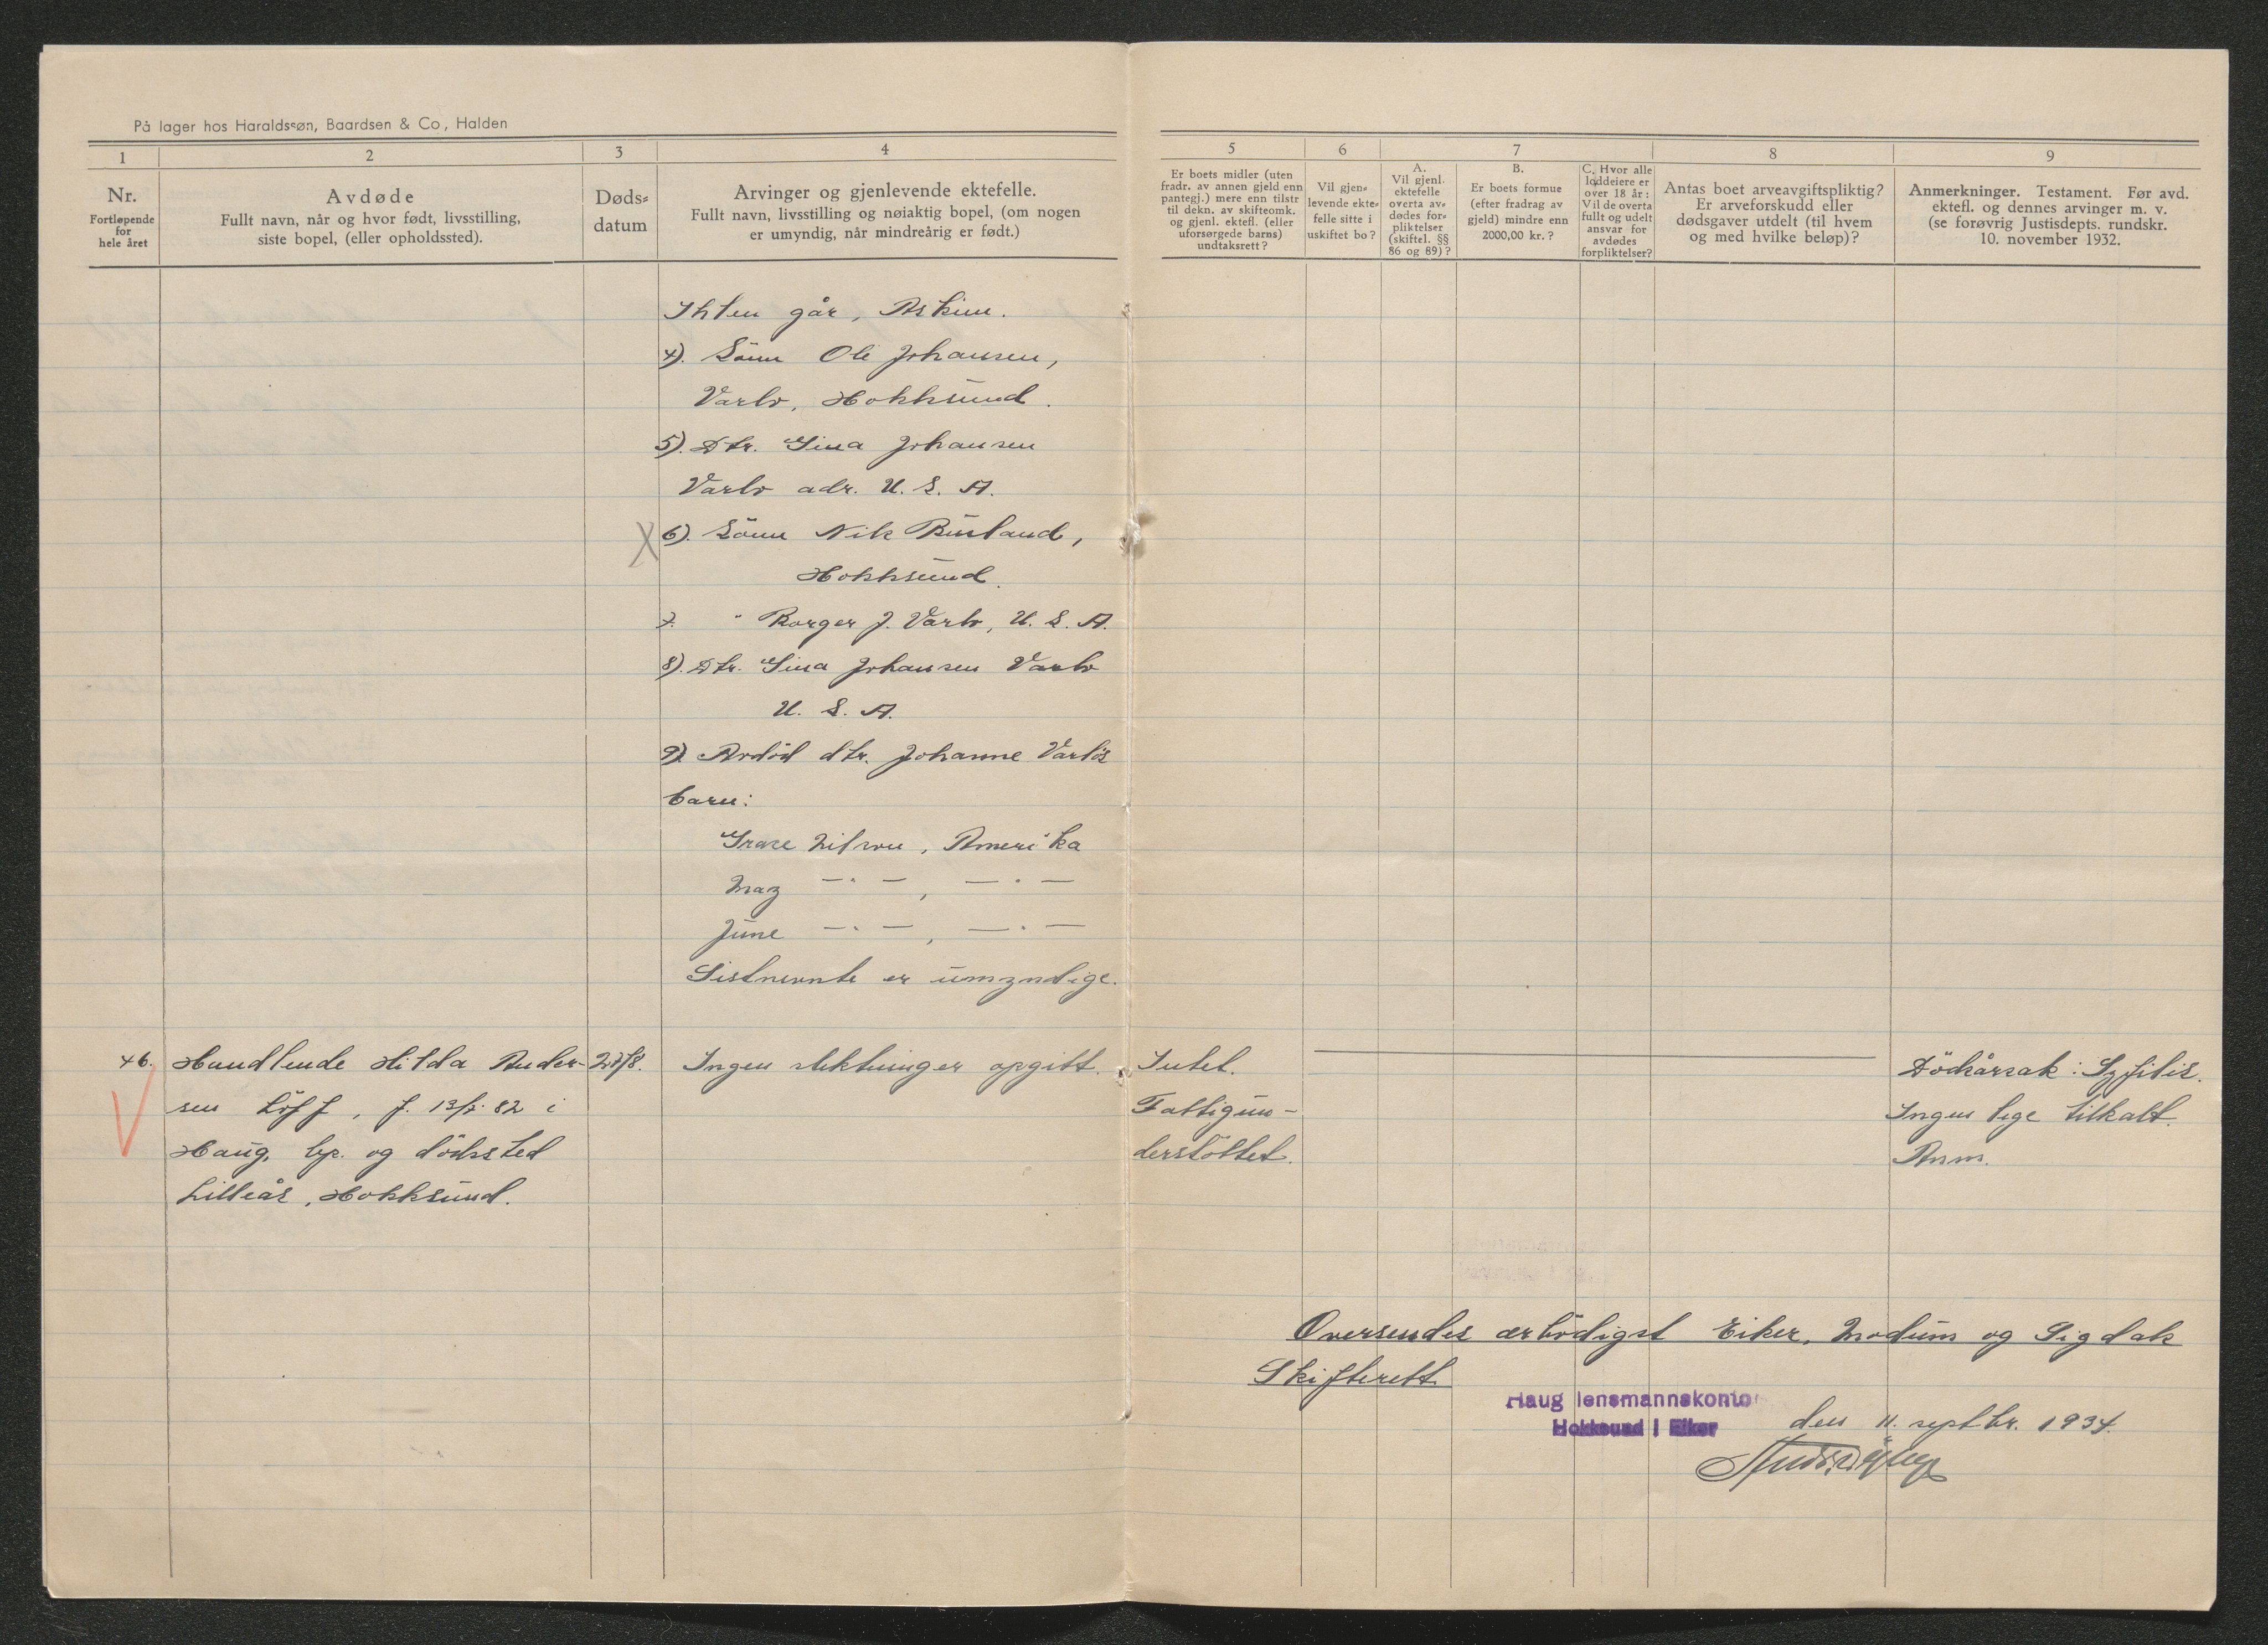 På lager hos Haraldssøn, Baardsen & Co., Halden
1
2
3
4
Nr.
Fortløpende
for
hele året
Avdøde
Fullt navn, når og hvor født, livsstilling,
siste bopel, (eller opholdssted).
Døds-
datum
Arvinger og gjenlevende ektefelle.
Fullt navn, livsstilling og nøiaktig bopel, (om nogen
er umyndig, når mindreårig er født.)
5
6
7
8
9
Er boets midler (uten
fradr. av annen gjeld enn
pantegj.) mere enn tilstr
til dekn. av skifteomk.
og gjenl. ektefl. (eller
uforsørgede barns)
undtaksrett?
Vil gjen-
levende ekte-
felle sitte i
uskiftet bo?
A.
Vil gjenl.
ektefelle
overta av-
dødes for-
pliktelser
(skiftel. §§
86 og 89)?
B.
Er boets formue
(efter fradrag av
gjeld) mindre enn
2000,00 kr.?
C. Hvor alle
loddeiere er
over 18 år:
Vil de overta
fullt og udelt
ansvar for
avdødes
forpliktelser?
Antas boet arveavgiftspliktig?
Er arveforskudd eller
dødsgaver utdelt (til hvem
og med hvilke beløp)?
Anmerkninger. Testament. Før avd.
ektefl. og dennes arvinger m. v.
(se forøvrig Justisdepts. rundskr.
10. november 1932.
går, Askim.
4). Sönn Ole Johansen,
Varlo, Hokksund.
5). Dtr. Gina Johansen
Varlo adr. U. S. A.
6). Sönn Nik Buland,
Hokksund.
7. " Borger J. Varlo, U. S. A.
8). Dtr. Gina Johansen Varlo
U. S. A.
9). Avdöd dtr. Johanne Varlös
barn:
Grace Nilsen, Amerika
May —"—, —"—
June —"—, —"—
Sistnevnte er umyndige.
46. Handlende Hilda Ander-
sen Löff, f. 13/2. 82 i
Haug, bp. og dödssted
Lilleås, Hokksund.
27/8.
Ingen slektninger opgitt.
Intet.
Fattigun-
derstöttet.
Dödsårsak: Syfilis.
Ingen lege tilkalt.
Anm.
Oversendes ærbödigst Eiker, Modum og Sigdals
Skifterett
Haug lensmannskontor
Hokksund i Eiker
den 11. septbr. 1934.